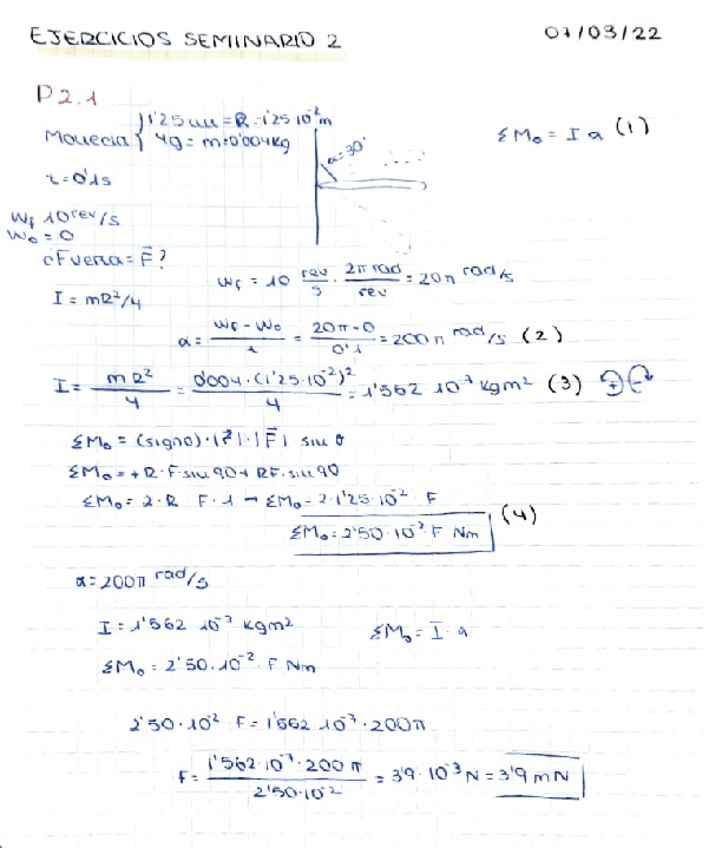 EJERCICIOS SEMINARIO 2
07/03/22
P2.1
1'25 cm = R = 1'25·10⁻² m
Moneda { 4g = m = 0'004 kg
α=30°
ΣM₀ = I α (1)
t = 0'1s
Wf 10 rev/s
W₀ = 0
¿Fuerza = F⃗?
Wf = 10 rev/s · 2π rad/rev = 20π rad/s
I = mR²/4
α = Wf - W₀/t = 20π - 0/0'1 = 200π rad/s (2)
I = mR²/4 = 0'004·(1'25·10⁻²)²/4 = 1'562 10⁻⁷ kgm² (3)
ΣM₀ = (signo)·|r⃗|·|F⃗| sin θ
ΣM₀ = + R·F·sin 90 + RF·sin 90
ΣM₀ = 2·R F·1 → ΣM₀ = 2·1'25·10⁻² F
ΣM₀ = 2'50·10⁻² F Nm (4)
α = 200π rad/s
I = 1'562 10⁻⁷ kgm²
ΣM₀ = I·α
ΣM₀ = 2'50·10⁻² F Nm
2'50·10² F = 1'562 10⁻⁷·200π
F = 1'562·10⁻⁷·200π/2'50·10⁻² = 3'9·10⁻³ N = 3'9 mN